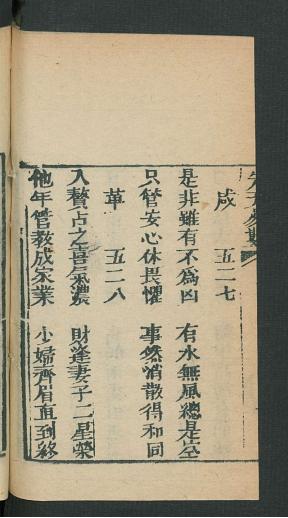 咸　五二七
是非雖有不為凶　有水無風總是空
只管安心休畏懼　事然消散得和同
革　五二八
入贅占之喜氣濃　財逢妻子二星榮
他年管教成家業　少婦齊眉直到終